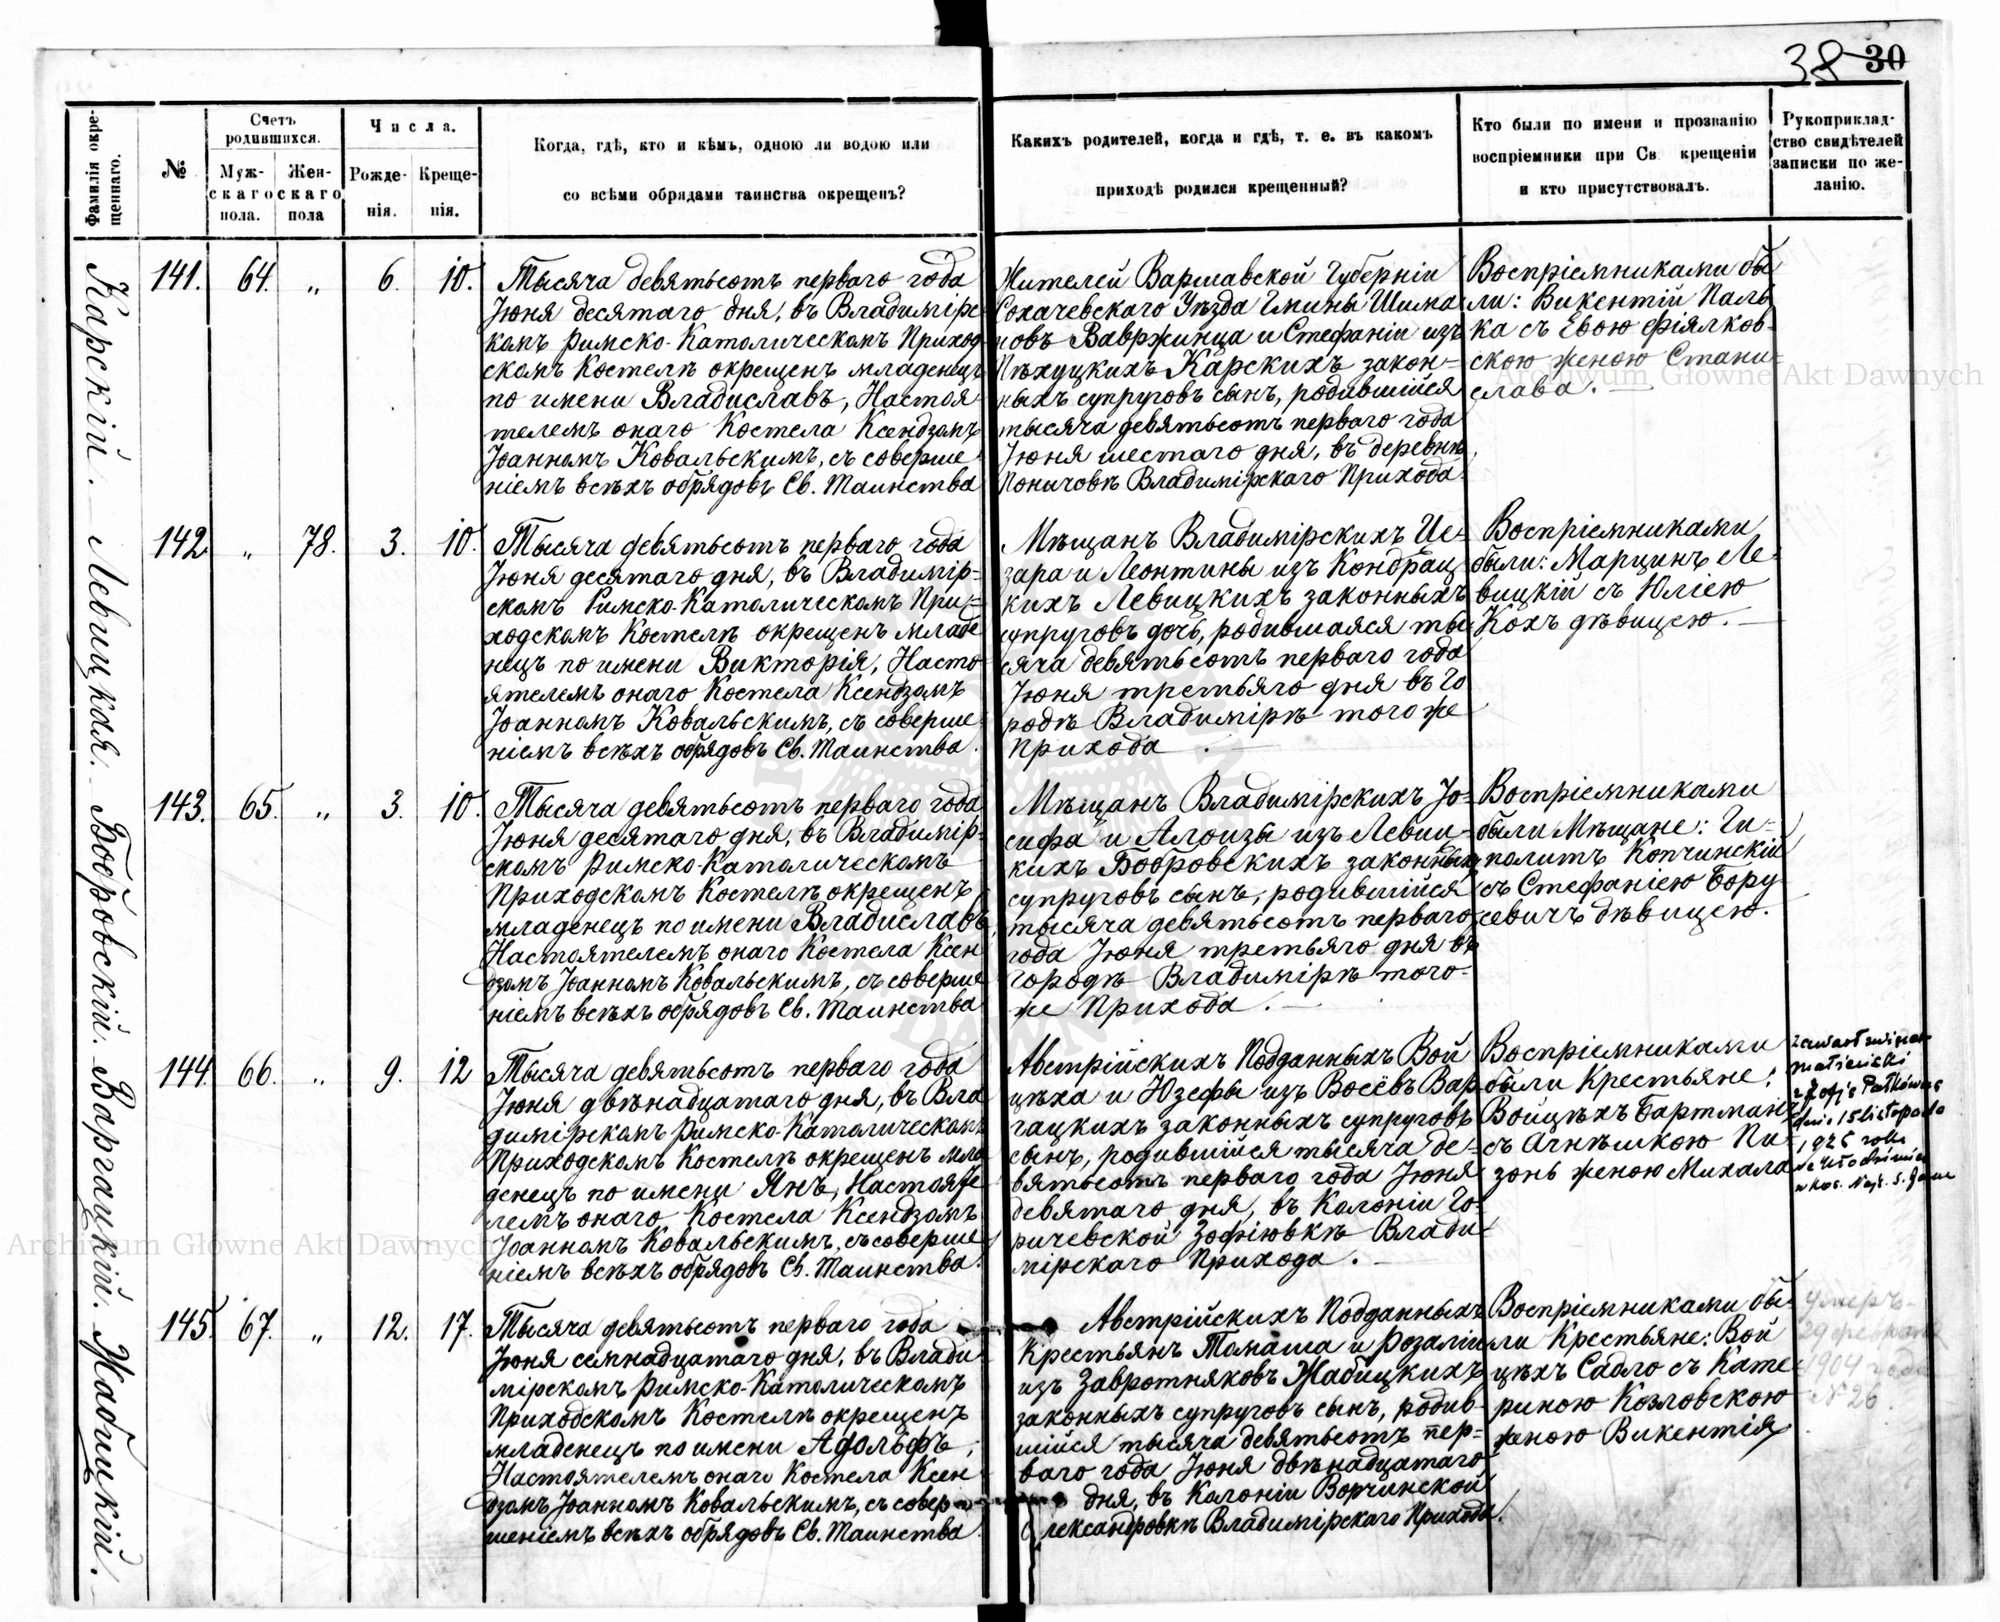 38 30
Фамилія окре-
щеннаго.
№
Счетъ
родившихся.
Муж-
скаго
пола.
Жен-
скаго
пола
Числа.
Рожде-
нія.
Креще-
нія.
Когда, гдѣ, кто и кѣмъ, одною ли водою или
со всѣми обрядами таинства окрещенъ?
Какихъ родителей, когда и гдѣ, т. е. въ какомъ
приходѣ родился крещенный?
Кто были по имени и прозванію
воспріемники при Св крещеніи
и кто присутствовалъ.
Рукоприклад-
ство свидѣтелей
записки по же-
ланію.
Карскій.
141. 64. „ 6. 10.
Тысяча девятьсотъ перваго года
Іюня десятаго дня, въ Владимірс-
комъ Римско-Католическомъ Приход-
скомъ Костелѣ окрещенъ младенецъ
по имени Владиславъ, Настоя-
телемъ онаго Костела Ксендзомъ
Іоанномъ Ковальскимъ, съ соверше-
ніемъ всѣхъ обрядовъ Св. Таинства
Жителей Варшавской Губерніи
Сохачевскаго Уѣзда Гмины Шима-
новъ Вавржинца и Стефаніи изъ
Пѣхуцкихъ Карскихъ закон-
ныхъ супруговъ сынъ, родившійся
тысяча девятьсотъ перваго года
Іюня шестаго дня, въ деревнѣ
Поничовѣ Владимірскаго Прихода.
Воспріемниками бы-
ли: Викентій Паль
ка съ Евою Фіялков-
скою женою Стани-
слава.
Левицкая.
142. „ 78. 3. 10.
Тысяча девятьсотъ перваго года
Іюня десятаго дня, въ Владимір-
скомъ Римско-Католическомъ При-
ходскомъ Костелѣ окрещенъ младе
нецъ по имени Викторія, Насто-
ятелемъ онаго Костела Ксендзомъ
Іоанномъ Ковальскимъ, съ соверше-
ніемъ всѣхъ обрядовъ Св. Таинства.
Мѣщанъ Владимірскихъ Це-
зара и Леонтины изъ Кондрац
кихъ Левицкихъ законныхъ
супруговъ дочь, родившаяся ты-
сяча девятьсотъ перваго года
Іюня третьяго дня въ Го
родѣ Владимірѣ того же
Прихода.
Воспріемниками
были: Марцинъ Ле-
вицкій съ Юліею
Кохъ дѣвицею.
Бобровскій.
143. 65. „ 3. 10.
Тысяча девятьсотъ перваго года
Іюня десятаго дня, въ Владимір-
скомъ Римско-Католическомъ
Приходскомъ Костелѣ окрещенъ
младенецъ по имени Владиславъ,
Настоятелемъ онаго Костела Ксен
дзомъ Іоанномъ Ковальскимъ, съ соверше
ніемъ всѣхъ обрядовъ Св. Таинства
Мѣщанъ Владимірскихъ Іо-
сифа и Алоизы изъ Левиц-
кихъ Бобровскихъ законныхъ
супруговъ сынъ, родившійся
тысяча девятьсотъ перваго
года Іюня третьяго дня въ
городѣ Владимірѣ того-
же Прихода.
Воспріемниками
были Мѣщане: Ги-
политъ Копчинскій
съ Стефаніею Бору
севичъ дѣвицею.
Варгацкій.
144. 66. „ 9. 12
Тысяча девятьсотъ перваго года
Іюня двѣнадцатаго дня, въ Вла
димірскомъ Римско-Католическомъ
Приходскомъ Костелѣ окрещенъ мла
денецъ по имени Янъ, Настояте
лемъ онаго Костела Ксендзомъ
Іоанномъ Ковальскимъ, съ соверше
ніемъ всѣхъ обрядовъ Св. Таинства.
Австрійскихъ Подданныхъ Вой
цѣха и Юзефы изъ Восёвъ Вар-
гацкихъ законныхъ супруговъ
сынъ, родившійся тысяча де-
вятьсотъ перваго года Іюня
девятаго дня, въ Колоніи Го-
ричевской Зофіювкѣ Влади
мірскаго Прихода.
Воспріемниками
были Крестьяне:
Войцѣхъ Бартманъ
съ Агнѣшкою Пи-
зонь женою Михала
Zawarł związek
małżeński
z Zofją Pałkówną
dnia 15 listopada
192 roku
we Włodzimierzu
w koś. Najś. S. Jezus
Жабицкій.
145. 67. „ 12. 17.
Тысяча девятьсотъ перваго года
Іюня семнадцатаго дня, въ Влади-
мірскомъ Римско-Католическомъ
Приходскомъ Костелѣ окрещенъ
младенецъ по имени Адольфъ,
Настоятелемъ онаго Костела Ксен
дзомъ Іоанномъ Ковальскимъ, съ совер-
шеніемъ всѣхъ обрядовъ Св. Таинства.
Австрійскихъ Подданныхъ
Крестьянъ Томаша и Розаліи
изъ Завротняковъ Жабицкихъ
законныхъ супруговъ сынъ, родив-
шійся тысяча девятьсотъ пер-
ваго года Іюня двѣнадцатаго
дня, въ Колоніи Ворчинской
Александровкѣ Владимірскаго Прихода.
Воспріемниками бы-
ли Крестьяне: Вой
цѣхъ Садло съ Кате-
риною Козловскою
женою Викентія
Умеръ
29 февраля
1904 года
№ 26.
Archiwum Główne Akt Dawnych
Archiwum Główne Akt Dawnych